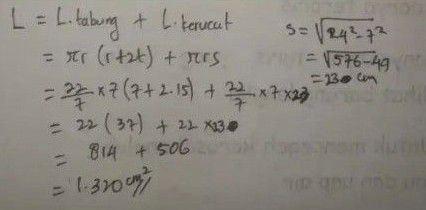 L = L.tabung + L.kerucut
= πr (r+2t) + πrs
= 22/7 × 7 (7+2.15) + 22/7 × 7 × 23
= 22 (37) + 22 × 23
= 814 + 506
= 1.320 cm²//
s = √24²-7²
= √576-49
= 23 cm